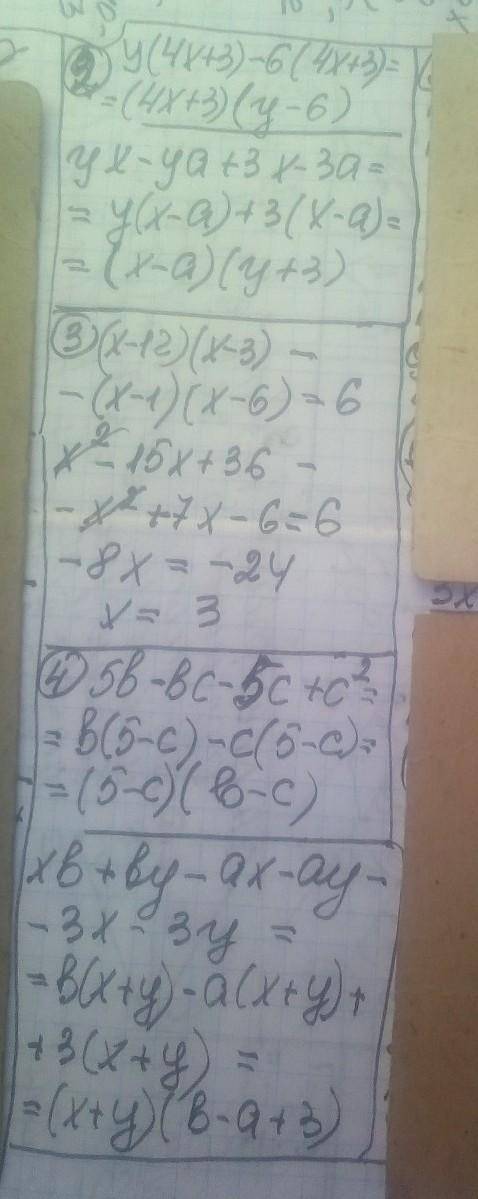 2) y(4x+3)-6(4x+3)=
=(4x+3)(y-6)
yx-ya+3x-3a=
=y(x-a)+3(x-a)=
=(x-a)(y+3)
3) (x-12)(x-3)-
-(x-1)(x-6)=6
x²-15x+36-
-x²+7x-6=6
-8x=-24
x=3
4) 5b-bc-5c+c²=
=b(5-c)-c(5-c)=
=(5-c)(b-c)
xb+by-ax-ay-
-3x-3y=
=b(x+y)-a(x+y)+
+3(x+y)=
=(x+y)(b-a+3)